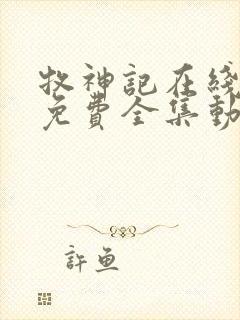 牧神記在綫
免費全集動
許魚